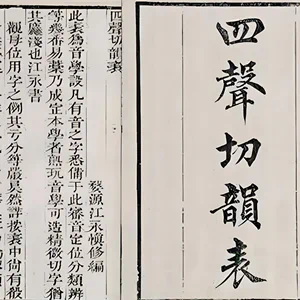 四聲切韻表
四聲切韻表
婺源江永慎修編
此表為音學設凡有音之字悉備于此審音定位分類辨
等幾番易藁乃成定本學者熟玩音學可造精微切字猶
其麤淺也江永書
觀母位用字之例其分等嚴矣然詳按表中尚有